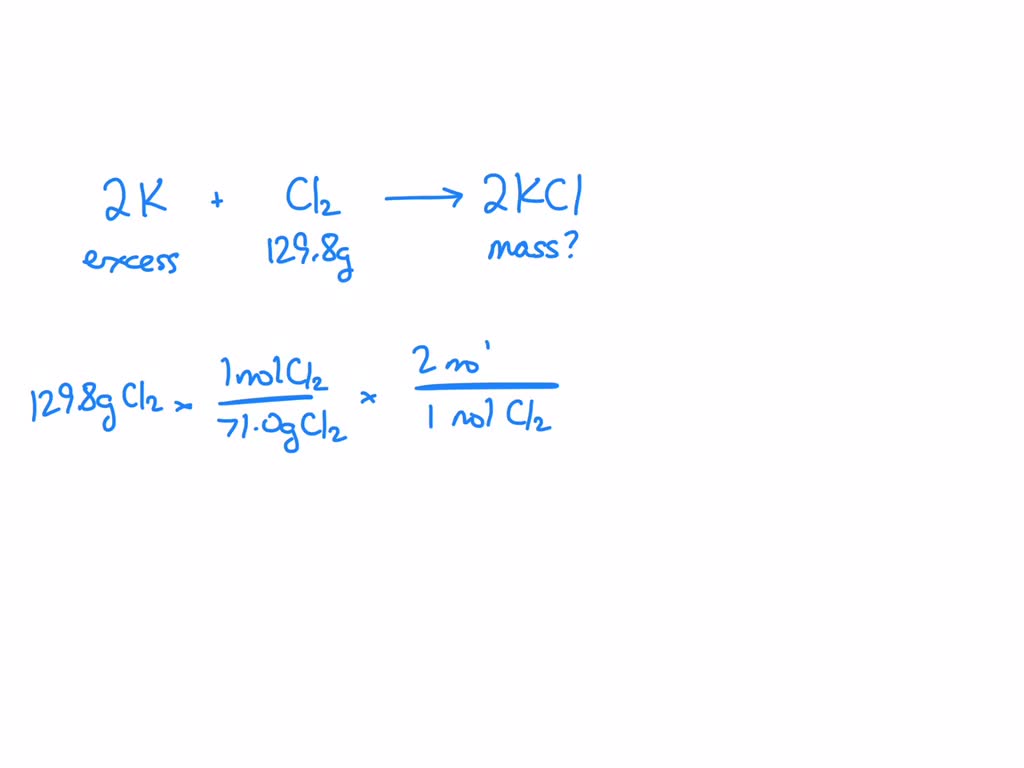 2K + Cl₂ ⟶ 2KCl
excess 129.8g mass?
129.8g Cl₂ × 1 mol Cl₂ / 71.0g Cl₂ × 2 / 1 mol Cl₂